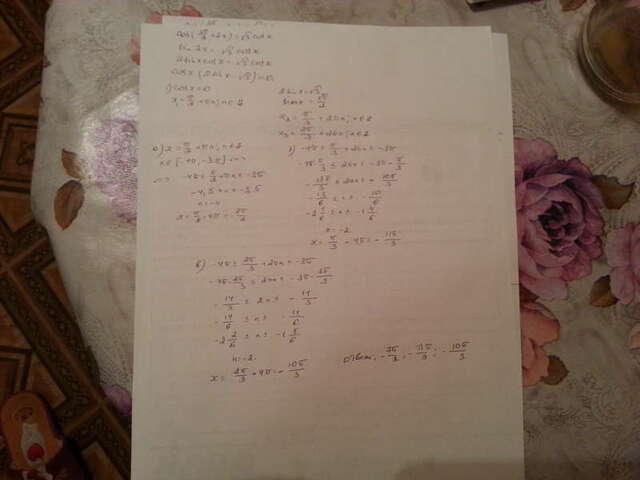 cos(3π/2 + 2x) = √3 cos x
sin 2x = √3 cos x
2 sin x cos x = √3 cos x
cos x (2 sin x - √3) = 0
1) cos x = 0
x₁ = π/2 + πn, n ∈ Z
2 sin x = √3
sin x = √3/2
x₂ = π/3 + 2πn, n ∈ Z
x₃ = 2π/3 + 2πn, n ∈ Z
а) x = π/2 + πn, n ∈ Z
x ∈ [-4π; -3π] <=>
<=> -4π ≤ π/2 + πn ≤ -3π
-4,5 ≤ n ≤ -3,5
n = -4
x = π/2 - 4π = -7π/2
б) -4π ≤ π/3 + 2πn ≤ -3π
-4π - π/3 ≤ 2πn ≤ -3π - π/3
-13π/3 ≤ 2πn ≤ -10π/3
-13/6 ≤ n ≤ -10/6
-2 1/6 ≤ n ≤ -1 4/6
n = -2
x = π/3 - 4π = -11π/3
в) -4π ≤ 2π/3 + 2πn ≤ -3π
-4π - 2π/3 ≤ 2πn ≤ -3π - 2π/3
-14/3 ≤ 2n ≤ -11/3
-14/6 ≤ n ≤ -11/6
-2 2/6 ≤ n ≤ -1 5/6
n = -2
x = 2π/3 + 4π = -10π/3
Ответ: -7π/2; -11π/3; -10π/3